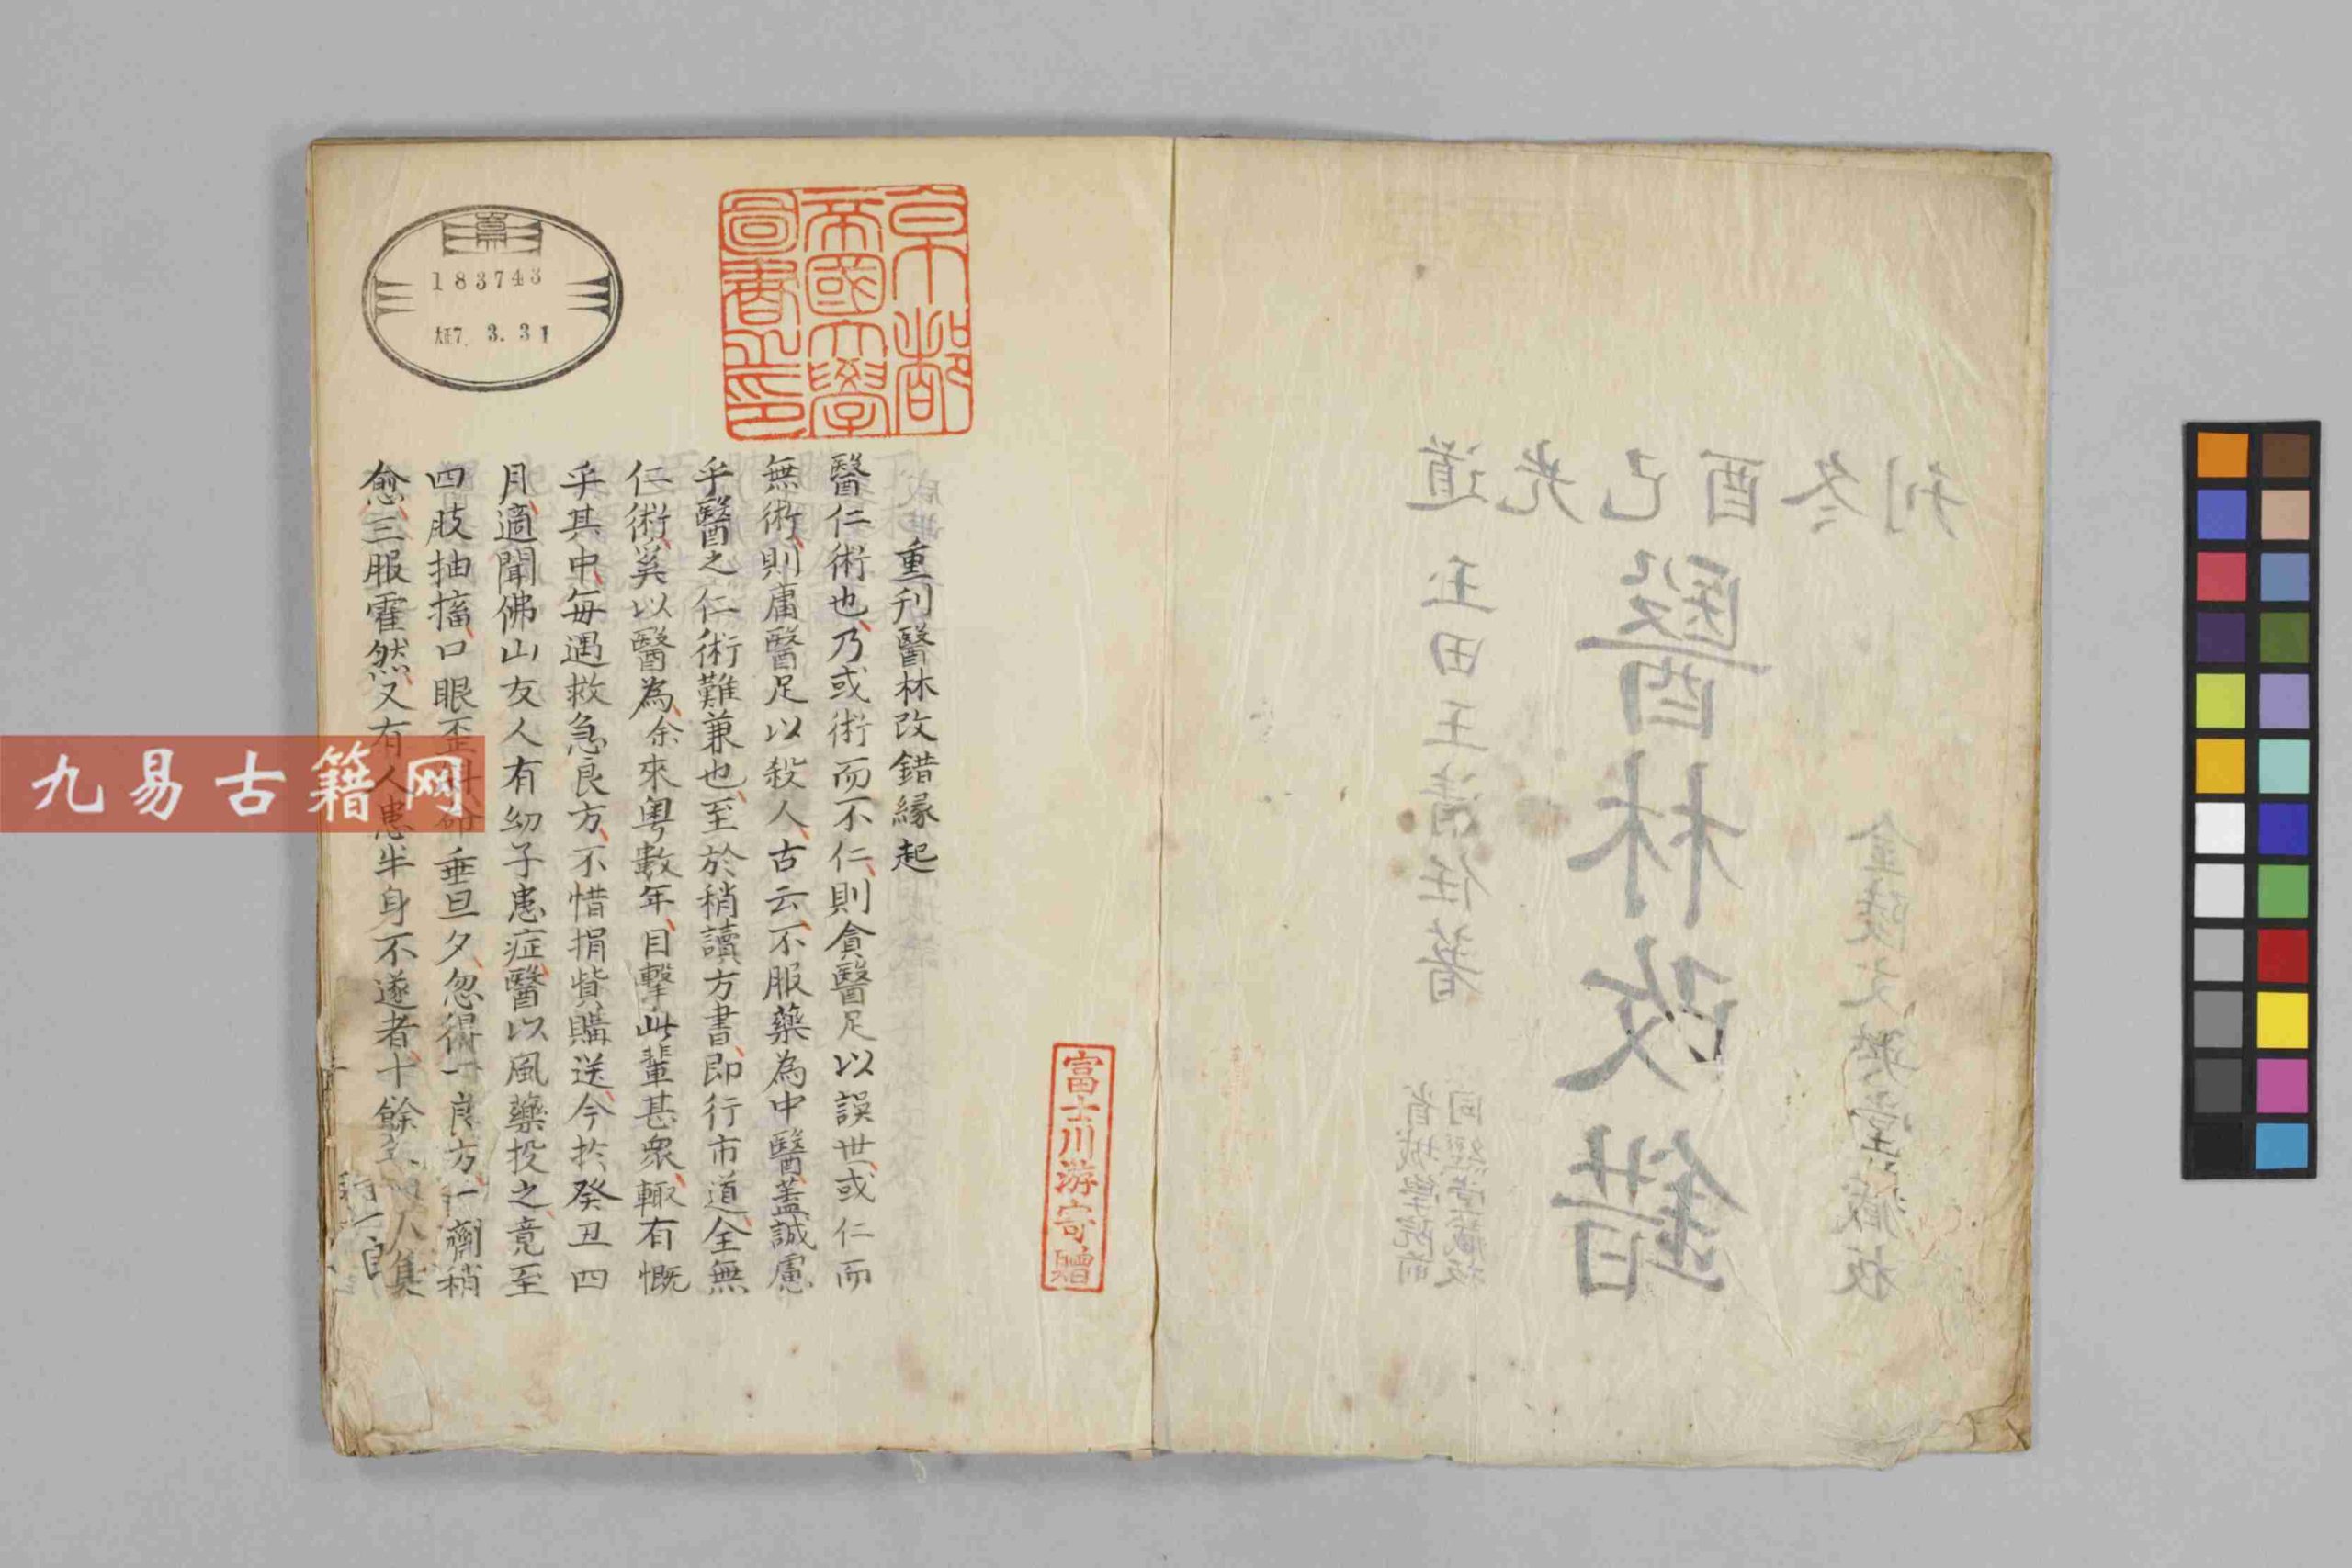 道光己酉冬刊
金陵文英堂藏板
醫林改錯
玉田王清任著
省城學院前
同經堂藏板
京都
帝國大學
圖書之印
183743
大正7. 3. 31
富士川游寄贈
重刋醫林改錯縁起
醫仁術也乃或術而不仁則貪醫足以誤世或仁而
無術則庸醫足以殺人古云不服藥為中醫蓋誠慮
乎醫之仁術難兼也至於稍讀方書即行市道全無
仁術奚以醫為余來粤數年目擊此輩甚衆輙有慨
乎其中每遇救急良方不惜捐貲購送今於癸丑四
月適聞佛山友人有幼子患症醫以風藥投之竟至
四肢抽搐口眼歪斜命垂旦夕忽得一良方一劑稍
愈三服霍然又有人患半身不遂者十餘
九易古籍网